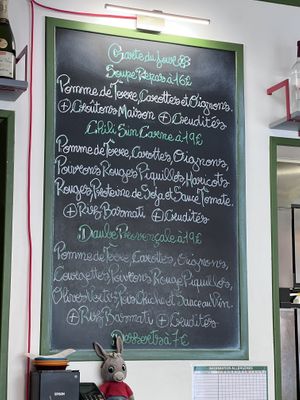 Carte du Jour
Soupe Repas à 16€
Pomme de Terre, Carottes et Oignons,
⊕ Croûtons Maison ⊕ Crudités
Chili Sin Carne à 19€
Pomme de Terre, Carottes, Oignons,
Poivrons Rouges, Piquillos, Haricots
Rouges, Proteine de Soja et Sauce Tomate.
⊕ Riz Basmati ⊕ Crudités
Daube Provençale à 19€
Pomme de Terre, Carottes, Oignons,
Courgettes, Poivrons Rouge, Piquillos,
Olives Vertes, Pois Chiche et Sauce au Vin
⊕ Riz Basmati ⊕ Crudités
Desserts à 7€
EPSON
INFORMATION ALLERGENES